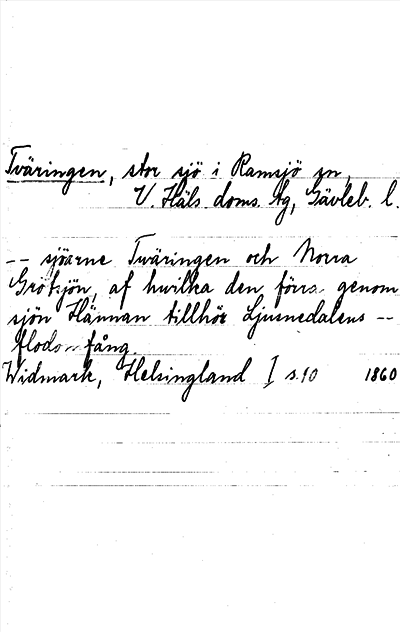 Tväringen, stor sjö i Ramsjö sn,
V. Häls. doms. tg, Gävleb. l.
-- sjöarne Twäringen och Norra
Grötsjön, af hwilka den förra genom
sjön Hännan tillhör Ljusnedalens --
flodomfång.
Widmark, Helsingland I s.10 1860